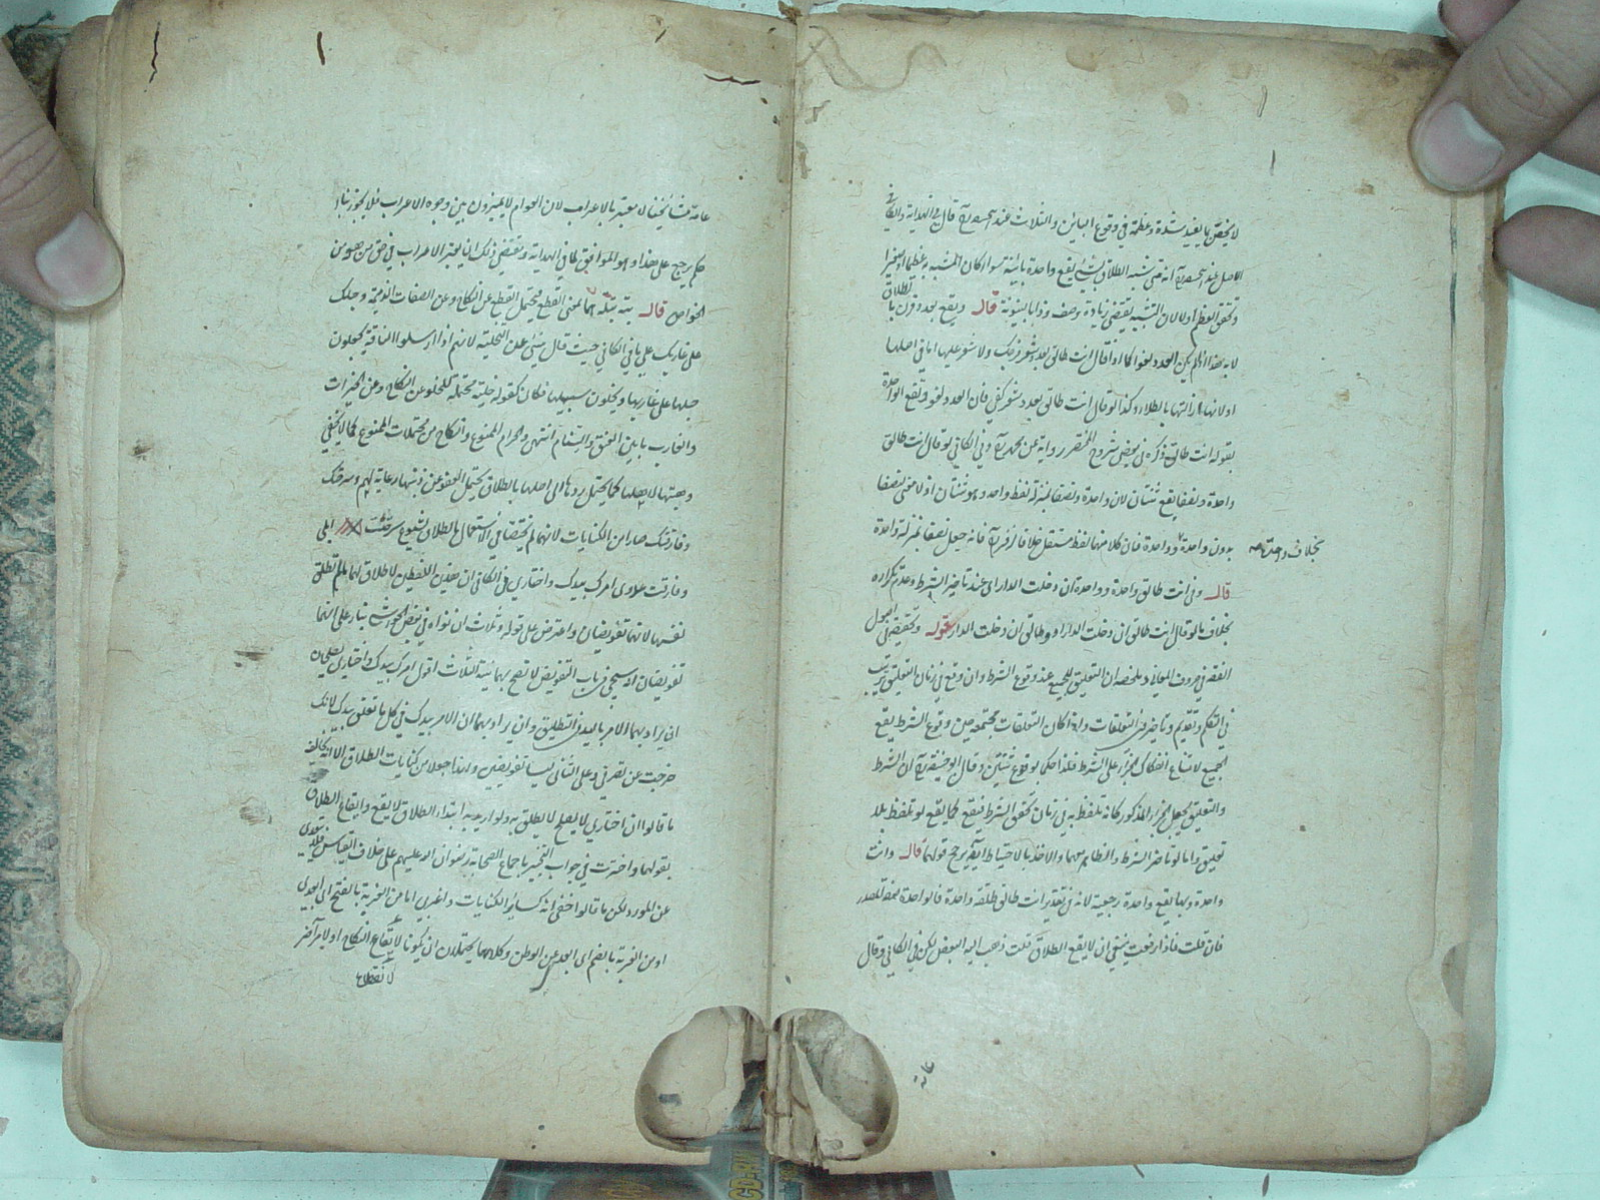 لا يختص بما يفيد شدة وعظمة في وقوع البائن والثلاث عند ابيحنيفة قال في الهداية والكافي
الاصل عند ابيحنيفة انه متى شبه الطلاق بشئ يقع واحدة بائنة سواء كان المشبه به عظيما او صغيرا
وتحقق العظم اولا لان التشبيه يقتضي زيادة وصف وذا بالبينونة قال ويقع بعدد قرن بالطلاق
لا به هذا اذا لم يكن العدد لغوا كما اذا قال انت طالق بعدد شعر فرجك ولا شعر عليها اما في اصلها
او لانها ازالتها بالطلاء وكذا لو قال انت طالق بعدد شعر كفي فان العدد لغو وتقع الواحدة
بقوله انت طالق ذكره في بعض شروح المختصر رواية عن محمد وفي الكافي لو قال انت طالق
واحدة ونصفا يقع ثنتان لان واحدة ونصفا بمنزلة لفظ واحد وهو ثنتان اذ لا معنى نصفا
بدون واحدة وواحدة فان كلا منهما لفظ مستقل خلافا لزفر فانه جعل نصفا بمنزلة واحدة
بخلاف واحدة
قال وفي انت طالق واحدة وواحدة ان دخلت الدار اي عند تاخير الشرط وعدم تكراره
بخلاف ما لو قال انت طالق ان دخلت الدار وطالق ان دخلت الدار قوله وتحقيقه في اصول
الفقه في حروف المعاني وملخصه ان التعليق للجميع عند وقوع الشرط وان وقع في زمان التعليق ترتيب
في التكلم وتقديم وتاخير في التعلقات واذا كان التعلقات مجتمعة حين وقوع الشرط يقع
الجميع لامتناع انفكاك الجزاء على الشرط فلذا حكما بوقوع ثنتين وقال ابو حنيفة ان الشرط
والتعليق يجعل الجزاء المذكور كانه تلفظ به في زمان تحقق الشرط فيقع كما يقع لو تلفظ بلا
تعليق واما لو تاخر الشرط والظاهر معهما والاخذ بالاحتياط ايضا يرجح قولهما قال وانت
واحدة وبها يقع واحدة رجعية لانه في تقدير انت طالق طلقة واحدة فالواحدة صفة للمصدر
فان قلت فاذا رفعت ينبغي ان لا يقع الطلاق قلت ذهب اليه البعض لكن في الكافي وقال
عامة
عامة مشائخنا لا معتبر بالاعراب لان العوام لا يميزون بين وجوه الاعراب فلا يجوز بناء
حكم يرجع على هذا وهو الموافق لما في الهداية ويقتضي ذلك انا نعتبر الاعراب في حق من هو من
الخواص قال بتة بتلة هما بمعنى القطع فيحتمل القطع عن النكاح وعن الصفات الذميمة وحبلك
على غاربك على ما في الكافي حيث قال ينبئ عن التخلية لانهم اذا ارسلوا الناقة يجعلون
حبلها على غاربها ويخلون سبيلها فكان كقوله خلية محتملة للخلو عن النكاح وعن الخيرات
والغارب ما بين العنق والسنام انتهى والحرام الممنوع والنكاح من محتملات الممنوع كما لا يخفى
وهبتها لاهلها كما يحتمل ردها الى اهلها بالطلاق يحتمل العفو عن ذنبها رعاية لهم وسرحتك
وفارقتك صارا من الكنايات لانهما لم يختصا في الاستعمال بالطلاق لشيوع سرحت ابلي
وفارقت علاوى امرك بيدك واختاري في الكافي ان هذين اللفظين لا طلاق لهما ما لم تطلق
نفسها لانهما تفويضان واعترض على قوله وثلاث ان نواه في بعض الحواشي بناء على انهما
تفويضان انه سيجئ في باب التفويض لا تصح بهما نية الثلاث اقول امرك بيدك واختاري يصلحان
ان يراد بهما الامر باليد في التطليق وان يراد بهما ان الامر بيدك في كل ما تعلق بيدك لانك
خرجت عن تصرفي وعلى الثاني ليسا تفويضين ولهذا جعلا من كنايات الطلاق الا انه يخالف
ما قالوا ان اختاري لا يصلح لا يطلق به ولو اريد به ابتداء الطلاق لا يقع وايقاع الطلاق
بقولها واخترت في جواب التخيير باجماع الصحابة رضوان الله عليهم على خلاف القياس فلا يتعدى
عن المورد لكن ما قالوا خفي انه كسائر الكنايات واغربي اما من الغربة بالفتح اي ابعدي
او من الغربة بالضم اي ابعد عن الوطن وكلاهما يحتملان ان يكونا لايقاع النكاح او لامر آخر
لانقطاع